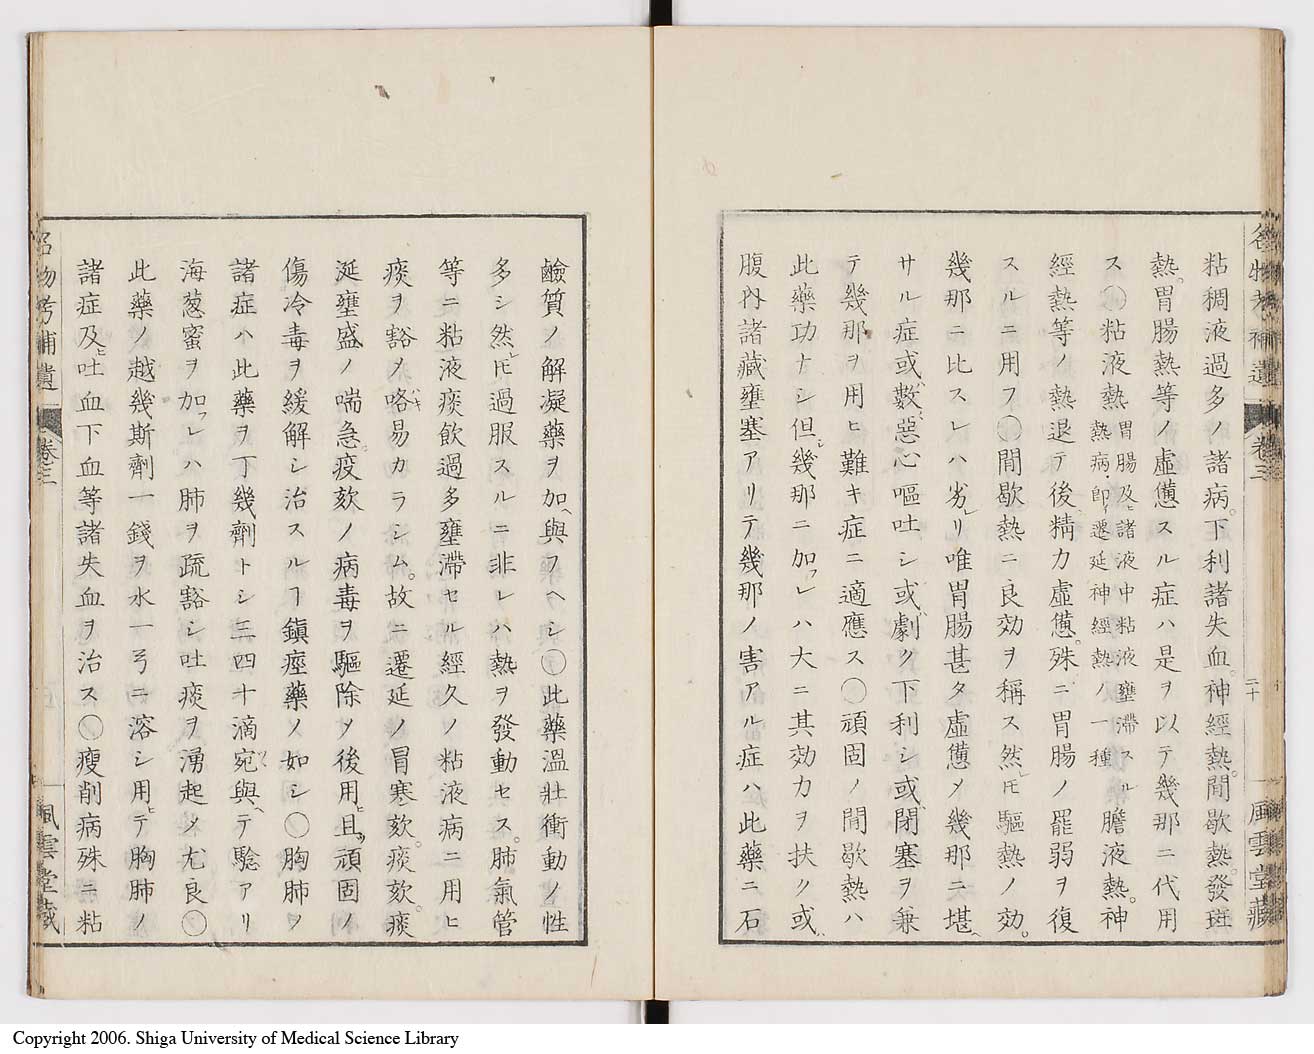 粘稠液過多ノ諸病。下利諸失血。神經熱。間歇熱。發斑
熱。胃腸熱等ノ虛憊スル症ハ是ヲ以テ幾那ニ代用
ス○粘液熱胃腸及ヒ諸液中粘液壅滯スル熱病即チ遷延神經熱ノ一種膽液熱。神
經熱等ノ熱退テ後精力虛憊。殊ニ胃腸ノ罷弱ヲ復
スルニ用フ○間歇熱ニ良効ヲ稱ス然レ𪜈驅熱ノ効。
幾那ニ比スレハ劣レリ唯胃腸甚タ虛憊メ幾那ニ堪ヘ
サル症或ハ數〻惡心嘔吐シ或ハ劇ク下利シ或ハ閉塞ヲ兼
テ幾那ヲ用ヒ難キ症ニ適應ス○頑固ノ間歇熱ハ
此藥功ナシ但シ幾那ニ加フレハ大ニ其効力ヲ扶ク或ハ
腹內諸藏壅塞アリテ幾那ノ害アル症ハ此藥ニ石
名物考補遺 卷三 二十 風雲堂藏
鹼質ノ解凝藥ヲ加ヘ與フヘシ○此藥溫壯衝動ノ性
多シ然レ𪜈過服スルニ非レハ熱ヲ發動セス。肺氣管
等ニ粘液痰飲過多壅滯セル經久ノ粘液病ニ用ヒ
痰ヲ豁メ咯キ易カラシム。故ニ遷延ノ冒寒欬。痰欬。痰
涎壅盛ノ喘急。疫欬ノ病毒ヲ驅除メ後用ヒ且ツ頑固ノ
傷冷毒ヲ緩解シ治スルヿ鎮痙藥ノ如シ○胸肺ヲ
諸症ハ此藥ヲ丁幾劑トシ三四十滴宛ツ與ヘテ驗アリ
海葱蜜ヲ加フレハ肺ヲ疏豁シ吐痰ヲ湧起メ尤良○
此藥ノ越幾斯劑一錢ヲ水一弓ニ溶シ用ヒテ胸肺ノ
諸症及ヒ吐血下血等諸失血ヲ治ス○瘦削病殊ニ粘
名物考補遺 卷三 風雲堂藏
Copyright 2006. Shiga University of Medical Science Library